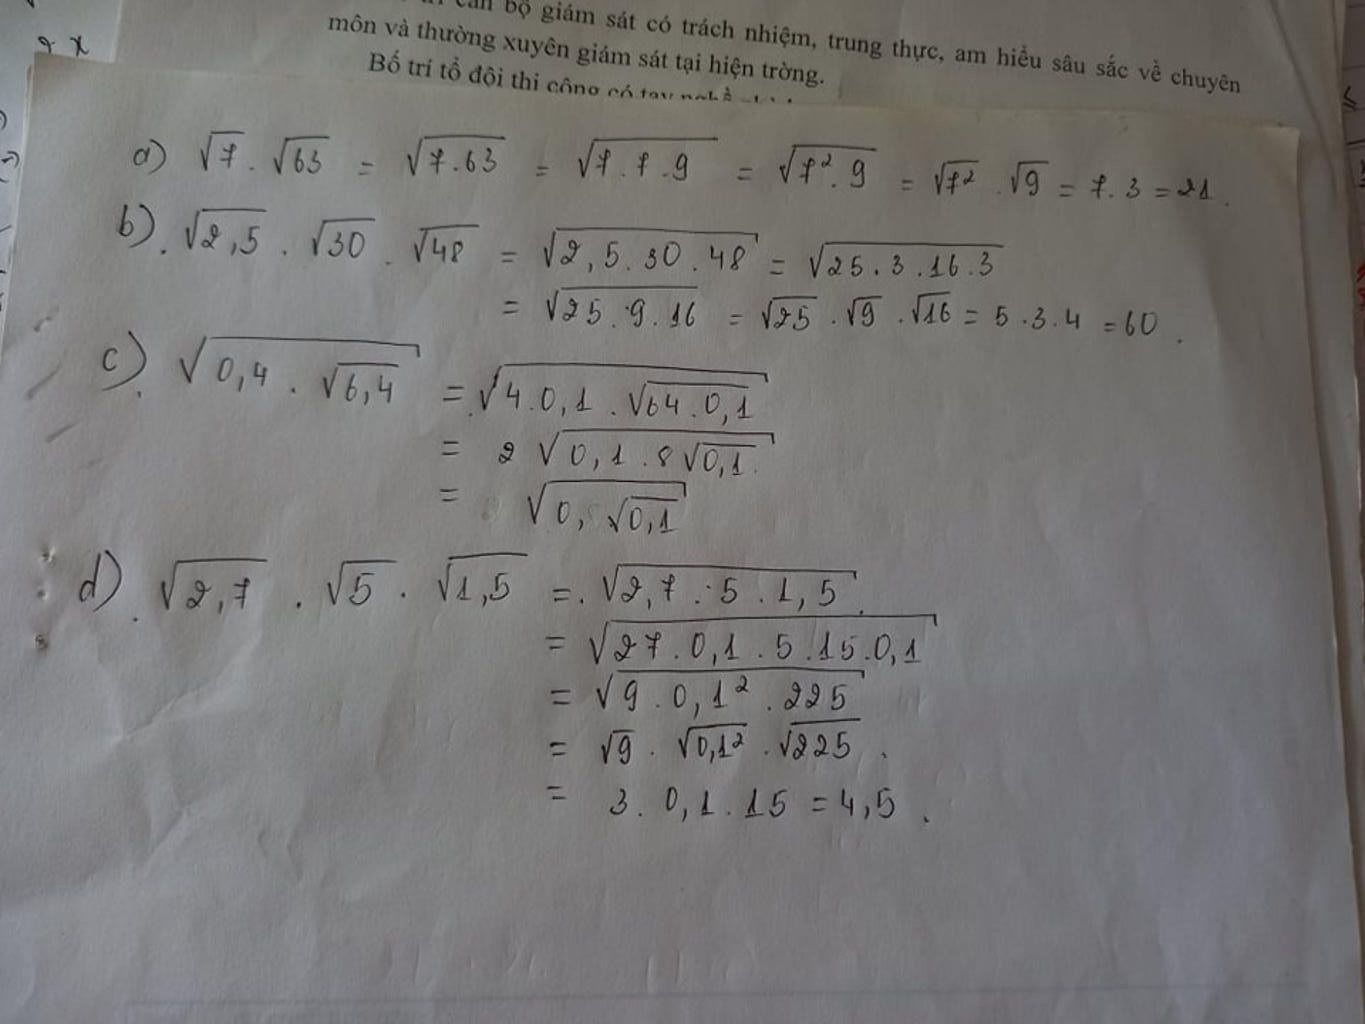 cán bộ giám sát có trách nhiệm, trung thực, am hiểu sâu sắc về chuyên
môn và thường xuyên giám sát tại hiện trờng.
Bố trí tổ đội thi công có tay nghề
9 x
a) √7 . √63 = √(7.63) = √(7.7.9) = √(7².9) = √7² . √9 = 7.3 = 21.
b). √2,5 . √30 . √48 = √(2,5.30.48) = √(25.3.16.3)
= √(25.9.16) = √25 . √9 . √16 = 5.3.4 = 60.
c). √(0,4 . √6,4) = √(4.0,1.√(64.0,1))
= 2√(0,1.8√0,1)
= √(0, √0,1)
d). √2,7 . √5 . √1,5 = √(2,7.5.1,5)
= √(27.0,1.5.15.0,1)
= √(9.0,1².225)
= √9 . √0,1² . √225.
= 3.0,1.15 = 4,5.